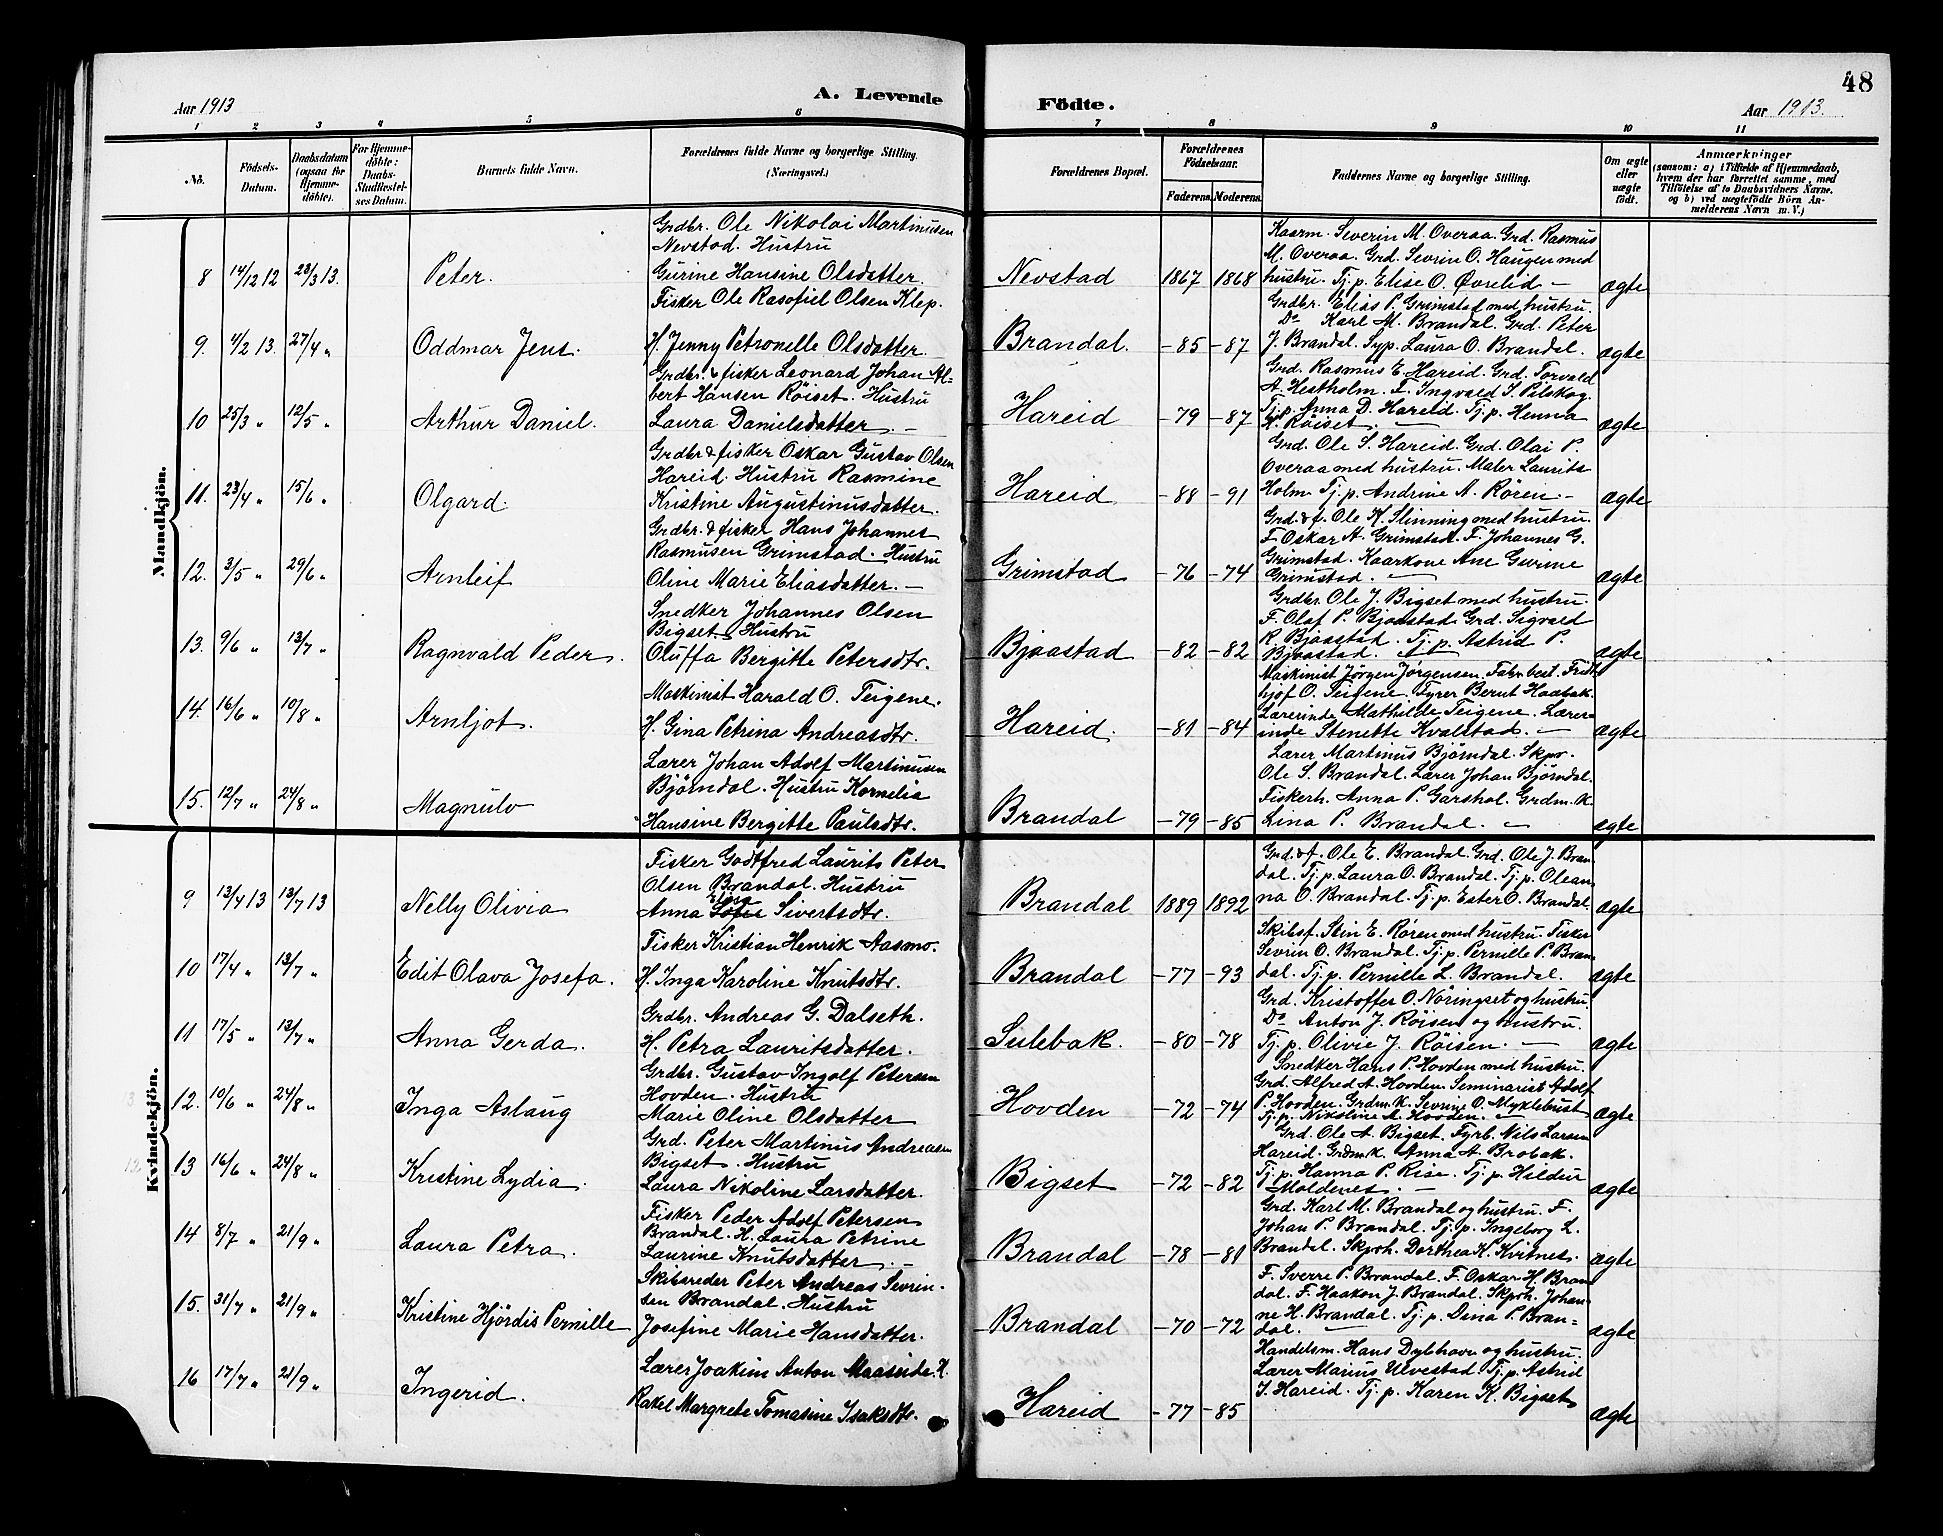 48
Aar 1913
A. Levende
Födte.
Aar 1913.
1 2 3 4 5 6 7 8 9 10 11
No.
Födsels-
Datum.
Daabsdatum
(ogsaa for
Hjemme-
döbte).
For Hjemme-
döbte:
Daabs-
Stadfæstel-
ses Datum.
Barnets fulde Navn.
Forældrenes fulde Navne og borgerlige Stilling.
(Næringsvei.)
Forældrenes Bopæl.
Forældrenes
Födselsaar.
Faderens. Moderens.
Faddernes Navne og borgerlige Stilling.
Om ægte
eller
uægte
födt.
Anmærkninger
(saasom: a) i Tilfælde af Hjemmedaab,
hvem der har forrettet samme, med
Tilföielse af to Daabsvidners Navne.
og b) ved uægtefödte Börn An-
melderens Navn m. V.)
Mandkjön.
8 14/12 12 23/3 13. Peter.
Grdbr. Ole Nikolai Martinusen
Nevstad. Hustru
Gurine Hansine Olsdatter.
Nevstad 1867 1868
Kaarm. Severin M. Overaa. Grd. Rasmus
M. Overaa. Grd. Sevrin O. Haugen med
hustru. Tj. p. Elise O. Øvrelid —
ægte
9. 4/2 13. 27/4 " Oddmar Jens.
Fisker Ole Rasofiel Olsen Klep.
H. Jenny Petronelle Olsdatter.
Brandal. -85 -87
Grdbr. Elias P. Grimstad med hustru.
Do Karl M. Brandal. Grd. Peter
J. Brandal. Syp. Laura O. Brandal.
ægte
10 25/3 " 12/5 " Arthur Daniel.
Grdbr. & fisker Leonard Johan Al-
bert Hansen Röiset. Hustru
Laura Danielsdatter. —
Hareid -79 -87
Grd. Rasmus E. Hareid. Grd. Torvald
A. Hestholm. F. Ingvald I. Pilskog.
Tj. p. Anna D. Hareid. Tj. p. Henna
K. Röiset. —
ægte
11. 23/4 " 15/6 " Olgard.
Grdbr & fisker Oskar Gustav Olsen
Hareid. Hustru Rasmine
Kristine Augustinusdatter.
Hareid -88 -91
Grd. Ole S. Hareid. Grd. Olai P.
Overaa med hustru. Maler Laurits
Holm. Tj. p. Andrine A. Rören. —
ægte
12. 3/5 " 29/6 " Arnleif
Grdbr. & fisker Hans Johannes
Rasmusen Grimstad. Hustru
Oline Marie Eliasdatter. —
Grimstad -76 -74
Grd. & f. Ole K. Slinning med hustru.
F. Oskar A. Grimstad. F. Johannes G.
Grimstad. Kaarkone Ane Gurine
Grimstad. —
ægte
13. 9/6 " 13/7 " Ragnvald Peder.
Snedker Johannes Olsen
Bigset. Hustru
Oluffa Bergitte Petersdtr.
Bjaastad -82 -82
Grdbr. Ole J. Bigset med hustru.
F. Olaf P. Bjaastad. Grd. Sigvald
R. Bjaastad. Tj. p. Astrid P.
Bjaastad. —
ægte
14. 16/6 " 10/8 " Arnljot.
Maskinist Harald O. Teigene.
H. Gina Petrina Andreasdtr.
Hareid. -81 -84
Maskinist Jörgen Jörgensen. Fabr.best. Fridt-
hjof O. Teigene. Fyrer Bernt Haabak.
Lærerinde Mathilde Teigene. Lærer-
inde Stenette Kvalstad. —
ægte
15. 12/7 " 24/8 " Magnulv
Lærer Johan Adolf Martinusen
Bjørndal. Hustru Kornelia
Hansine Bergitte Paulsdtr.
Brandal -79 -85
Lærer Martinus Bjørndal. Skpr.
Ole S. Brandal. Lærer Johan Bjørndal.
Fiskerh. Anna P. Garshol. Grdm. K.
Lina P. Brandal. —
ægte
Kvindekjön.
9 13/4 13 13/7 13 Nelly Olivia
Fisker Godtfred Laurits Peter
Olsen Brandal. Hustru
Anna Sofie Sivertsdtr.
Brandal 1889 1892
Grd. & f. Ole E. Brandal. Grd. Ole J. Bran-
dal. Tj. p. Laura O. Brandal. Tj. p. Olean-
na O. Brandal. Tj. p. Ester O. Brandal.
ægte
10 17/4 " 13/7 " Edit Olava Josefa.
Fisker Kristian Henrik Aasmo.
H. Inga Karoline Knutsdtr.
Brandal -77 -93
Skibsf. Stin E. Røren med hustru. Fisker
Sevrin O. Brandal. Tj. p. Pernille P. Bran-
dal. Tj. p. Pernille L. Brandal.
ægte
11 17/5 " 13/7 " Anna Gerda.
Grdbr. Andreas G. Dalseth.
H. Petra Lauritsdatter.
Sulebak. -80 -78
Grd. Kristoffer O. Nöringset og hustru.
Do Anton J. Röisen og hustru.
Tj. p. Olivie J. Röisen. —
ægte
13 12. 10/6 " 24/8 " Inga Aslaug
Grdbr. Gustav Ingolf Petersen
Hovden. Hustru
Marie Oline Olsdatter
Hovden -72 -74
Snedker Hans P. Hovden med hustru.
Grd. Alfred A. Hovden. Seminarist Adolf
P. Hovden. Grdm. K. Sevrine O. Myklebust
Tj. p. Nikoline A. Hovden. —
ægte
12 13 16/6 " 24/8 " Kristine Lydia.
Grd. Peter Martinus Andreasen
Bigset. Hustru
Laura Nikoline Larsdatter.
Bigset -72 -82
Grd. Ole A. Bigset. Fyrb. Nils Larsen
Hareid. Grdm K. Anna A. Brobak.
Tj. p. Hanna P. Rise. Tj. p. Hildur
Moldenes. —
ægte
14 8/7 " 21/9 " Laura Petra.
Fisker Peder Adolf Petersen
Brandal. H. Laura Petrine
Laurine Knutsdatter. —
Brandal -78 -81
Grd. Karl M. Brandal og hustru. F.
Johan P. Brandal. Tj. p. Ingeborg L.
Brandal. Skprh. Dorthea K. Kvitnes.
ægte
15. 31/7 " 21/9 " Kristine Hjördis Pernille
Skibsreder Peter Andreas Sevrin-
sen Brandal. Hustru
Josefine Marie Hansdatter.
Brandal -70 -72
F. Sverre P. Brandal. F. Oskar H. Bran-
dal. F. Haakon J. Brandal. Skprh. Johan-
ne H. Brandal. Tj. p. Dina P. Bran=
dal. —
ægte
16 17/7 " 21/9 " Ingerid.
Lærer Joakim Anton Maaseide. H.
Rakel Margrete Tomasine Isaksdtr.
Hareid -77 -85
Handelsm. Hans Dybhavn og hustru.
Lærer Marius Ulvestad. Tj. p. Astrid
I. Hareid. Tj. p. Karen K. Bigset
ægte